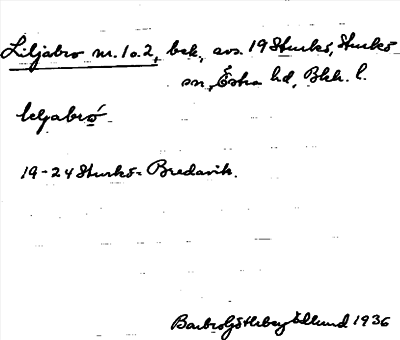 Liljabro nr. 1 o. 2, bek, avs. 19 Sturkö, Sturkö
sn, Östra hd, Blek. l.
19-24 Sturkö - Bredavik.
Barbro Götlberg Edlund 1936